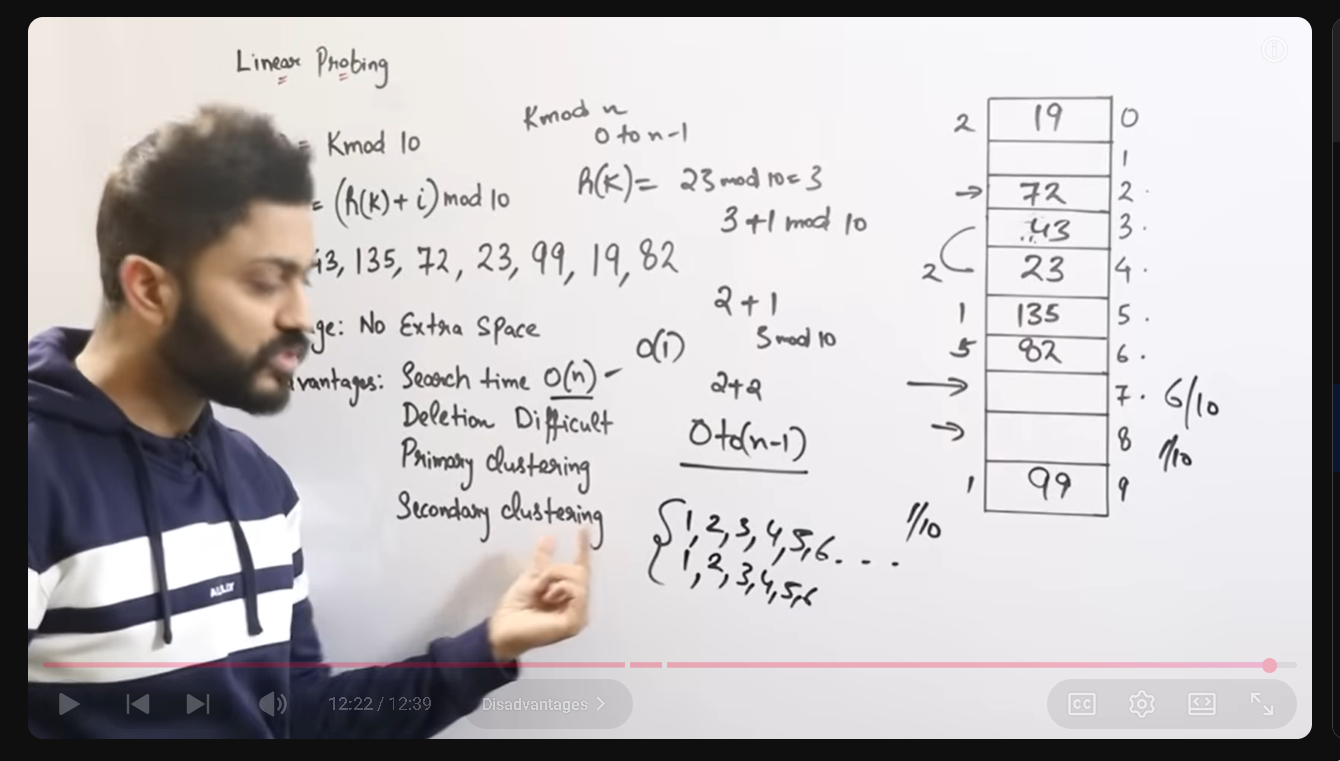 Linear Probing
= Kmod 10
= (h(K)+ i) mod 10
43, 135, 72, 23, 99, 19, 82
ge: No Extra Space
vantages: Search time O(n) – O(1)
Deletion Difficult
Primary clustering
Secondary clustering
Kmod n
0 to n-1
h(K)= 23 mod 10= 3
3+1 mod 10
2+1
3 mod 10
2+2
0 to(n-1)
1, 2, 3, 4, 5, 6 . . .
1, 2, 3, 4, 5, 6
1/10
2 19 0
1
→ 72 2
43 3
2 23 4
1 135 5
5 82 6
→ 7 6/10
→ 8 1/10
1 99 9
12:22 / 12:39
Disadvantages >
CC